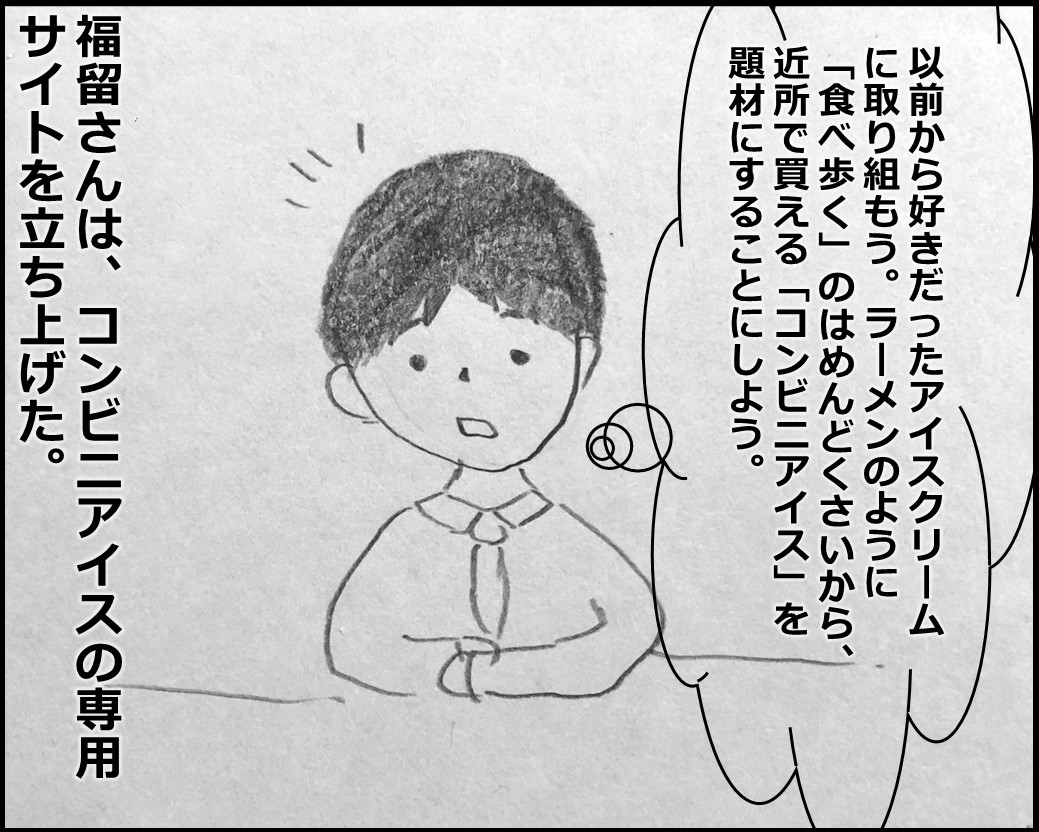 以前から好きだったアイスクリーム
に取り組もう。ラーメンのように
「食べ歩く」のはめんどくさいから、
近所で買える「コンビニアイス」を
題材にすることにしよう。
福留さんは、コンビニアイスの専用
サイトを立ち上げた。